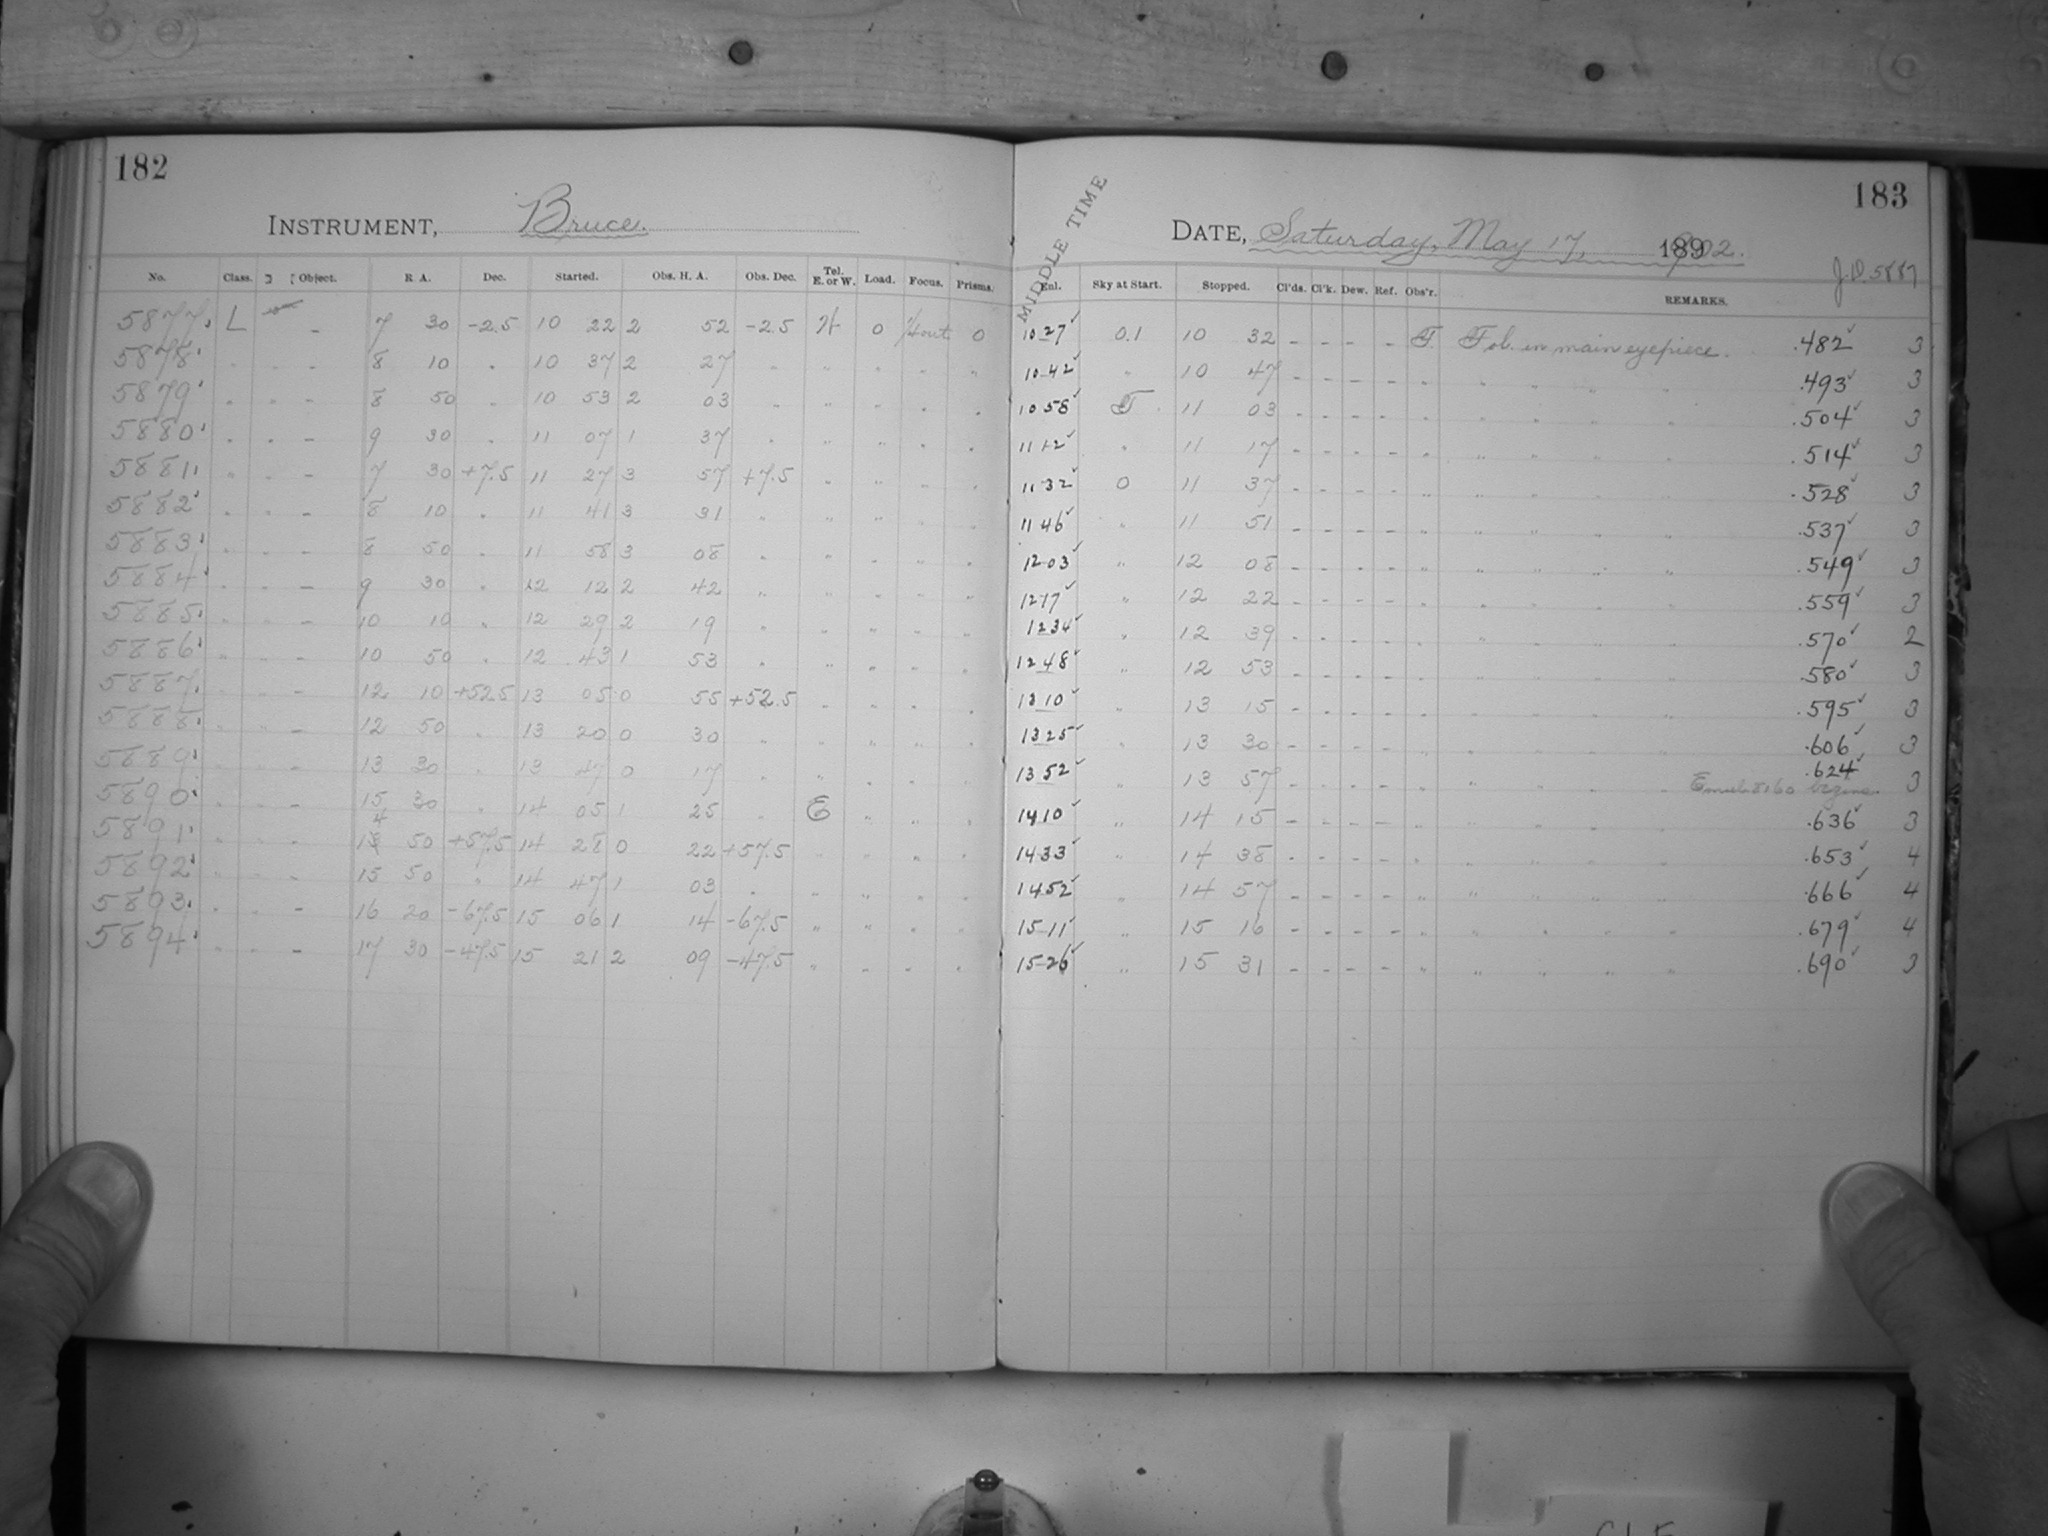 182
INSTRUMENT, Bruce.
No. Class. Object. R A. Dec. Started. Obs. H. A. Obs. Dec. Tel. E. or W. Load. Focus. Prisms.
5877. L - 7 30 -2.5 10 22 2 52 -2.5 W 0 1/4 out 0
5878. " - 8 10 " 10 37 2 27 " " " " "
5879. " " - 8 50 " 10 53 2 03 " " " " "
5880. " " - 9 30 " 11 07 1 37 " " " " "
5881. " " - 7 30 +7.5 11 27 3 57 +7.5 " " " "
5882. " " - 8 10 " 11 41 3 31 " " " " "
5883. " " - 8 50 " 11 58 3 08 " " " " "
5884. " " - 9 30 " 12 12 2 42 " " " " "
5885. " " - 10 10 " 12 29 2 19 " " " " "
5886. " " - 10 50 " 12 43 1 53 " " " " "
5887. " " - 12 10 +52.5 13 05 0 55 +52.5 " " " "
5888. " " - 12 50 " 13 20 0 30 " " " " "
5889. " " - 13 30 " 13 47 0 17 " " " " "
5890. " " - 15 30 " 14 05 1 25 " E " " "
5891. " " - 14 50 +57.5 14 28 0 22 +57.5 " " " "
5892. " " - 15 50 " 14 47 1 03 " " " " "
5893. " " - 16 20 -67.5 15 06 1 14 -67.5 " " " "
5894. " " - 17 30 -47.5 15 21 2 09 -47.5 " " " "
183
MIDDLE TIME
DATE, Saturday, May 17, 1902.
J.D. 5887
Enl. Sky at Start. Stopped. Cl'ds. Cl'k. Dew. Ref. Obs'r. REMARKS.
10 27 ✓ 0.1 10 32 - - - - F. Fol. in main eyepiece. .482 ✓ 3
10 42 ✓ " 10 47 - - - - " " " " " .493 ✓ 3
10 58 ✓ F. 11 03 - - - - " " " " " .504 ✓ 3
11 12 ✓ " 11 17 - - - - " " " " " .514 ✓ 3
11 32 ✓ 0 11 37 - - - - " " " " " .528 ✓ 3
11 46 ✓ " 11 51 - - - - " " " " " .537 ✓ 3
12 03 ✓ " 12 08 - - - - " " " " " .549 ✓ 3
12 17 ✓ " 12 22 - - - - " " " " " .559 ✓ 3
12 34 ✓ " 12 39 - - - - " " " " " .570 ✓ 2
12 48 ✓ " 12 53 - - - - " " " " " .580 ✓ 3
13 10 ✓ " 13 15 - - - - " " " " " .595 ✓ 3
13 25 ✓ " 13 30 - - - - " " " " " .606 ✓ 3
13 52 ✓ " 13 57 - - - - " " " " " 8160 begins. .624 ✓ 3
14 10 ✓ " 14 15 - - - - " " " " " .636 ✓ 3
14 33 ✓ " 14 38 - - - - " " " " " .653 ✓ 4
14 52 ✓ " 14 57 - - - - " " " " " .666 ✓ 4
15 11 ✓ " 15 16 - - - - " " " " " .679 ✓ 4
15 26 ✓ " 15 31 - - - - " " " " " .690 ✓ 3